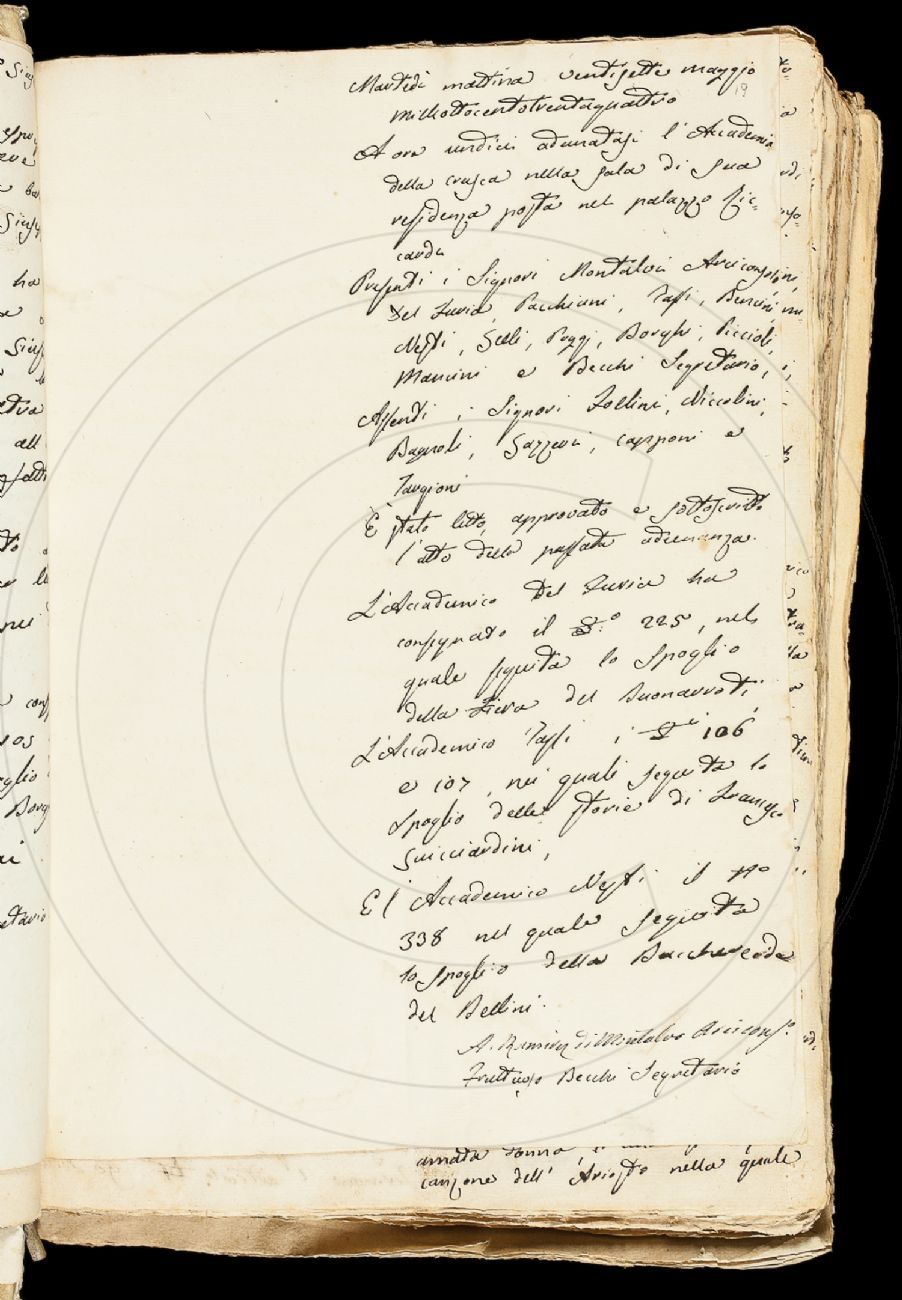 19
Martedì mattina ventisette maggio
milleottocentotrentaquattro
A ore undici adunatasi l'Accademia
della crusca nella sala di sua
residenza posta nel palazzo Ric-
cardi
Presenti i Signori Montalvi Arciconsolo,
Del Furia, Pacchiani, Tassi, Bencini,
Nesti, Selli, Poggi, Borghi, Piccioli,
Mancini e Becchi Segretario,
Assenti i Signori Follini, Niccolini,
Bagnoli, Gazzeri, Capponi e
Targioni
È stato letto, approvato e sottoscritto
l'atto della passata adunanza.
L'Accademico Del Furia ha
consegnato il S.º 225, nel
quale seguita lo Spoglio
della Fiera del Buonarroti
L'Accademico Tassi i S.i 106
e 107, nei quali seguita lo
Spoglio delle storie di Francesco
Guicciardini,
E l'Accademico Nesti il Nº
338 nel quale seguita
lo spoglio della Bucchereide
del Bellini.
A. Ramirez di Montalvo Arcicons.º
Fruttuoso Becchi Segretario
amata donna,
canzone dell'Ariosto nella quale